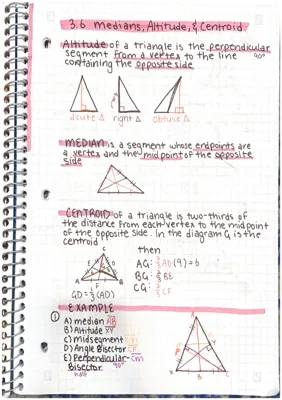 3.6 Medians, Altitude, & Centroid
Altitude of a triangle is the perpendicular
segment from a vertex to the line 90°
containing the opposite side
acute Δ right Δ obtuse Δ
MEDIAN is a segment whose endpoints are
a vertex and the midpoint of the opposite
side
CENTROID of a triangle is two-thirds of
the distance from each vertex to the midpoint
of the opposite side. In the diagram G is the
centroid
then
AG: 2/3 AD (9) = 6
BG: 2/3 BE
CG: 2/3 CF
GD = 1/3 (AD)
EXAMPLE
① A) median
B) Altitude
C) midsegment
D) Angle Bisector
E) Perpendicular- 90°
Bisector
half